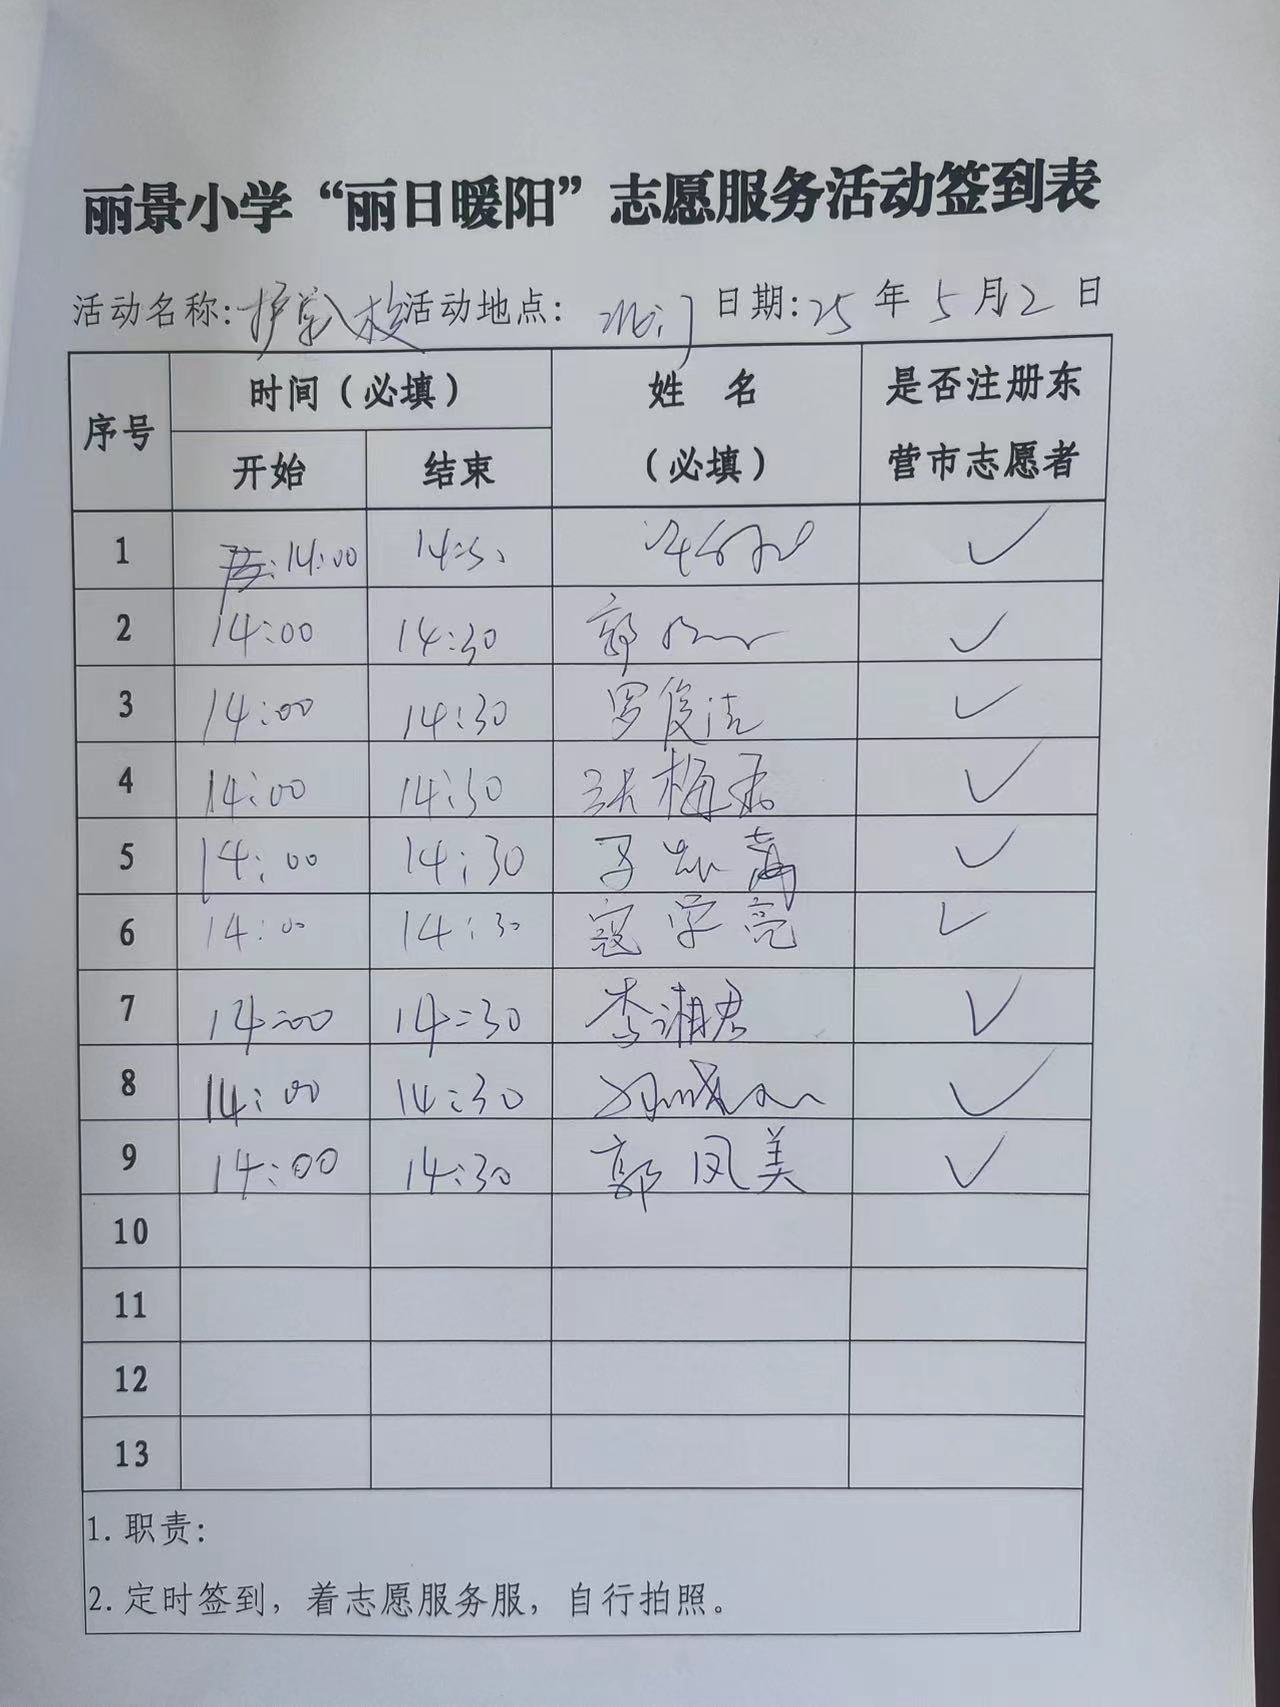 丽景小学“丽日暖阳”志愿服务活动签到表
活动名称:护学入校 活动地点: 日期:25年5月2日
序号 时间(必填) 姓 名 (必填) 是否注册东营市志愿者
开始 结束
1 14:00 14:30 ✓
2 14:00 14:30 郭 ✓
3 14:00 14:30 罗俊洁 ✓
4 14:00 14:30 张梅君 ✓
5 14:00 14:30 ✓
6 14:00 14:30 寇学亮 ✓
7 14:00 14:30 李湘君 ✓
8 14:00 14:30 ✓
9 14:00 14:30 郭凤美 ✓
10
11
12
13
1. 职责:
2. 定时签到，着志愿服务服，自行拍照。